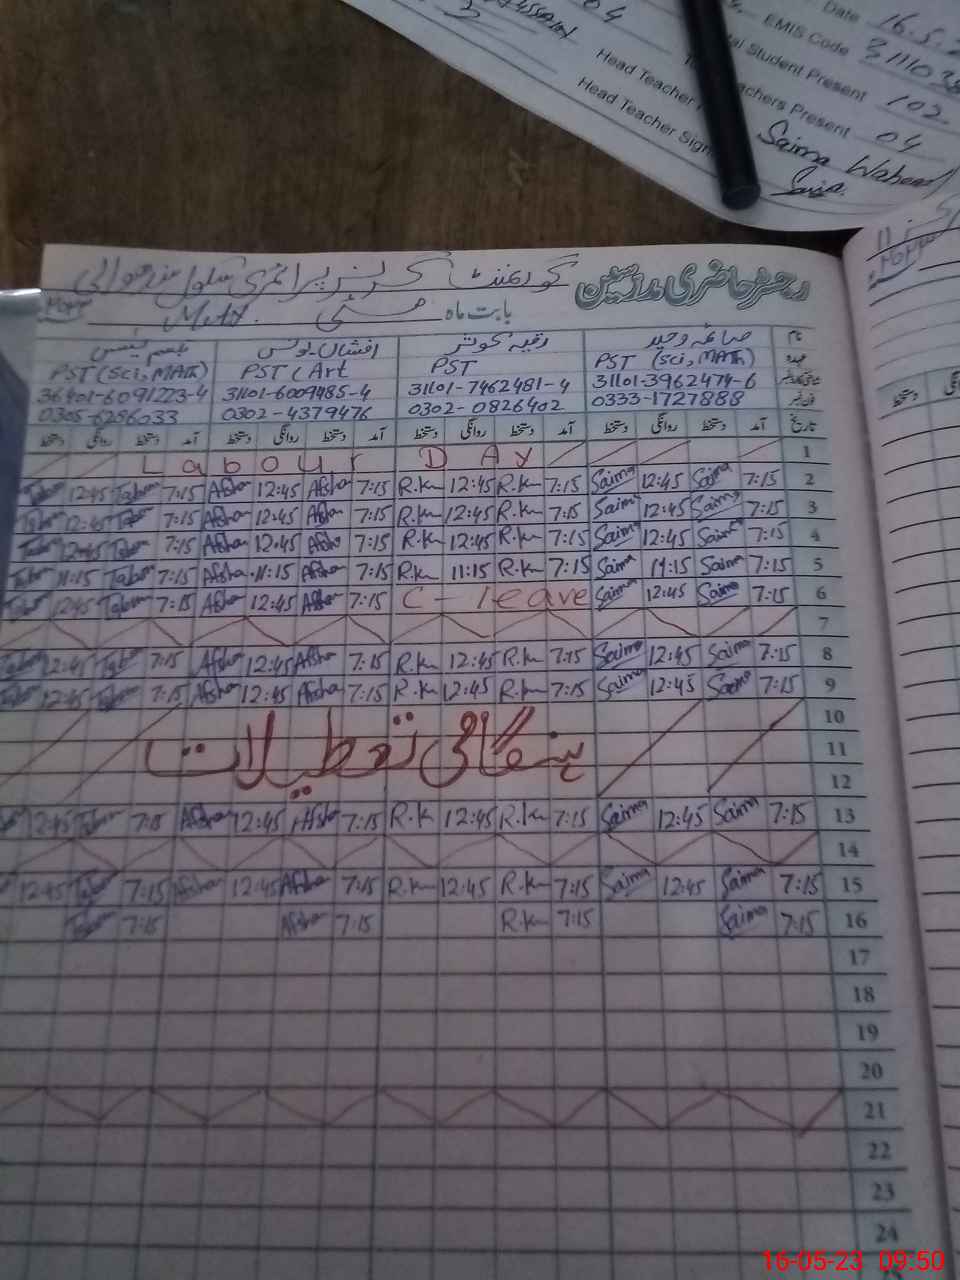 Date 16.5.2
EMIS Code 311103
Student Present 102
Teachers Present 04
Head Teacher
Head Teacher Sign
Saima Waheed
Saima
04
رجسٹر حاضری مدرسین گورنمنٹ گرلز پرائمری سکول
بابت ماہ مئی May.
نام صائمہ وحید رقیہ کوثر افشاں یونس
عہدہ PST (Sci, MATh) PST PST (Art PST (Sci, MATh)
31101-3962474-6 31101-7462481-4 31101-6009485-4 36401-6091223-4
0333-1727888 0302-0826402 0302-4379476 0305-6286033
تاریخ آمد دستخط روانگی دستخط آمد دستخط روانگی دستخط آمد دستخط روانگی دستخط آمد دستخط روانگی دستخط
1 Labour DAy
2 7:15 Saima 12:45 Saima 7:15 R.K 12:45 R.K 7:15 Afsha 12:45 Afsha 7:15 Tabsm 12:45 Tabsm
3 7:15 Saima 12:45 Saima 7:15 R.K 12:45 R.K 7:15 Afsha 12:45 Afsha 7:15 Tabsm 12:45 Tabsm
4 7:15 Saima 12:45 Saima 7:15 R.K 12:45 R.K 7:15 Afsha 12:45 Afsha 7:15 Tabsm 12:45 Tabsm
5 7:15 Saima 11:15 Saima 7:15 R.K 11:15 R.K 7:15 Afsha 11:15 Afsha 7:15 Tabsm 11:15 Tabsm
6 7:15 Saima 12:45 Saima C-leave 7:15 Afsha 12:45 Afsha 7:15 Tabsm 12:45 Tabsm
7
8 7:15 Saima 12:45 Saima 7:15 R.K 12:45 R.K 7:15 Afsha 12:45 Afsha 7:15 Tabsm 12:45 Tabsm
9 7:15 Saima 12:45 Saima 7:15 R.K 12:45 R.K 7:15 Afsha 12:45 Afsha 7:15 Tabsm 12:45 Tabsm
10
11 ہنگامی تعطیلات
12
13 7:15 Saima 12:45 Saima 7:15 R.K 12:45 R.K 7:15 Afsha 12:45 Afsha 7:15 Tabsm 12:45
14
15 7:15 Saima 12:45 Saima 7:15 R.K 12:45 R.K 7:15 Afsha 12:45 Afsha 7:15 Tabsm 12:45
16 7:15 Saima 7:15 R.K 7:15 Afsha 7:15 Tabsm
17
18
19
20
21
22
23
24
16-05-23 09:50